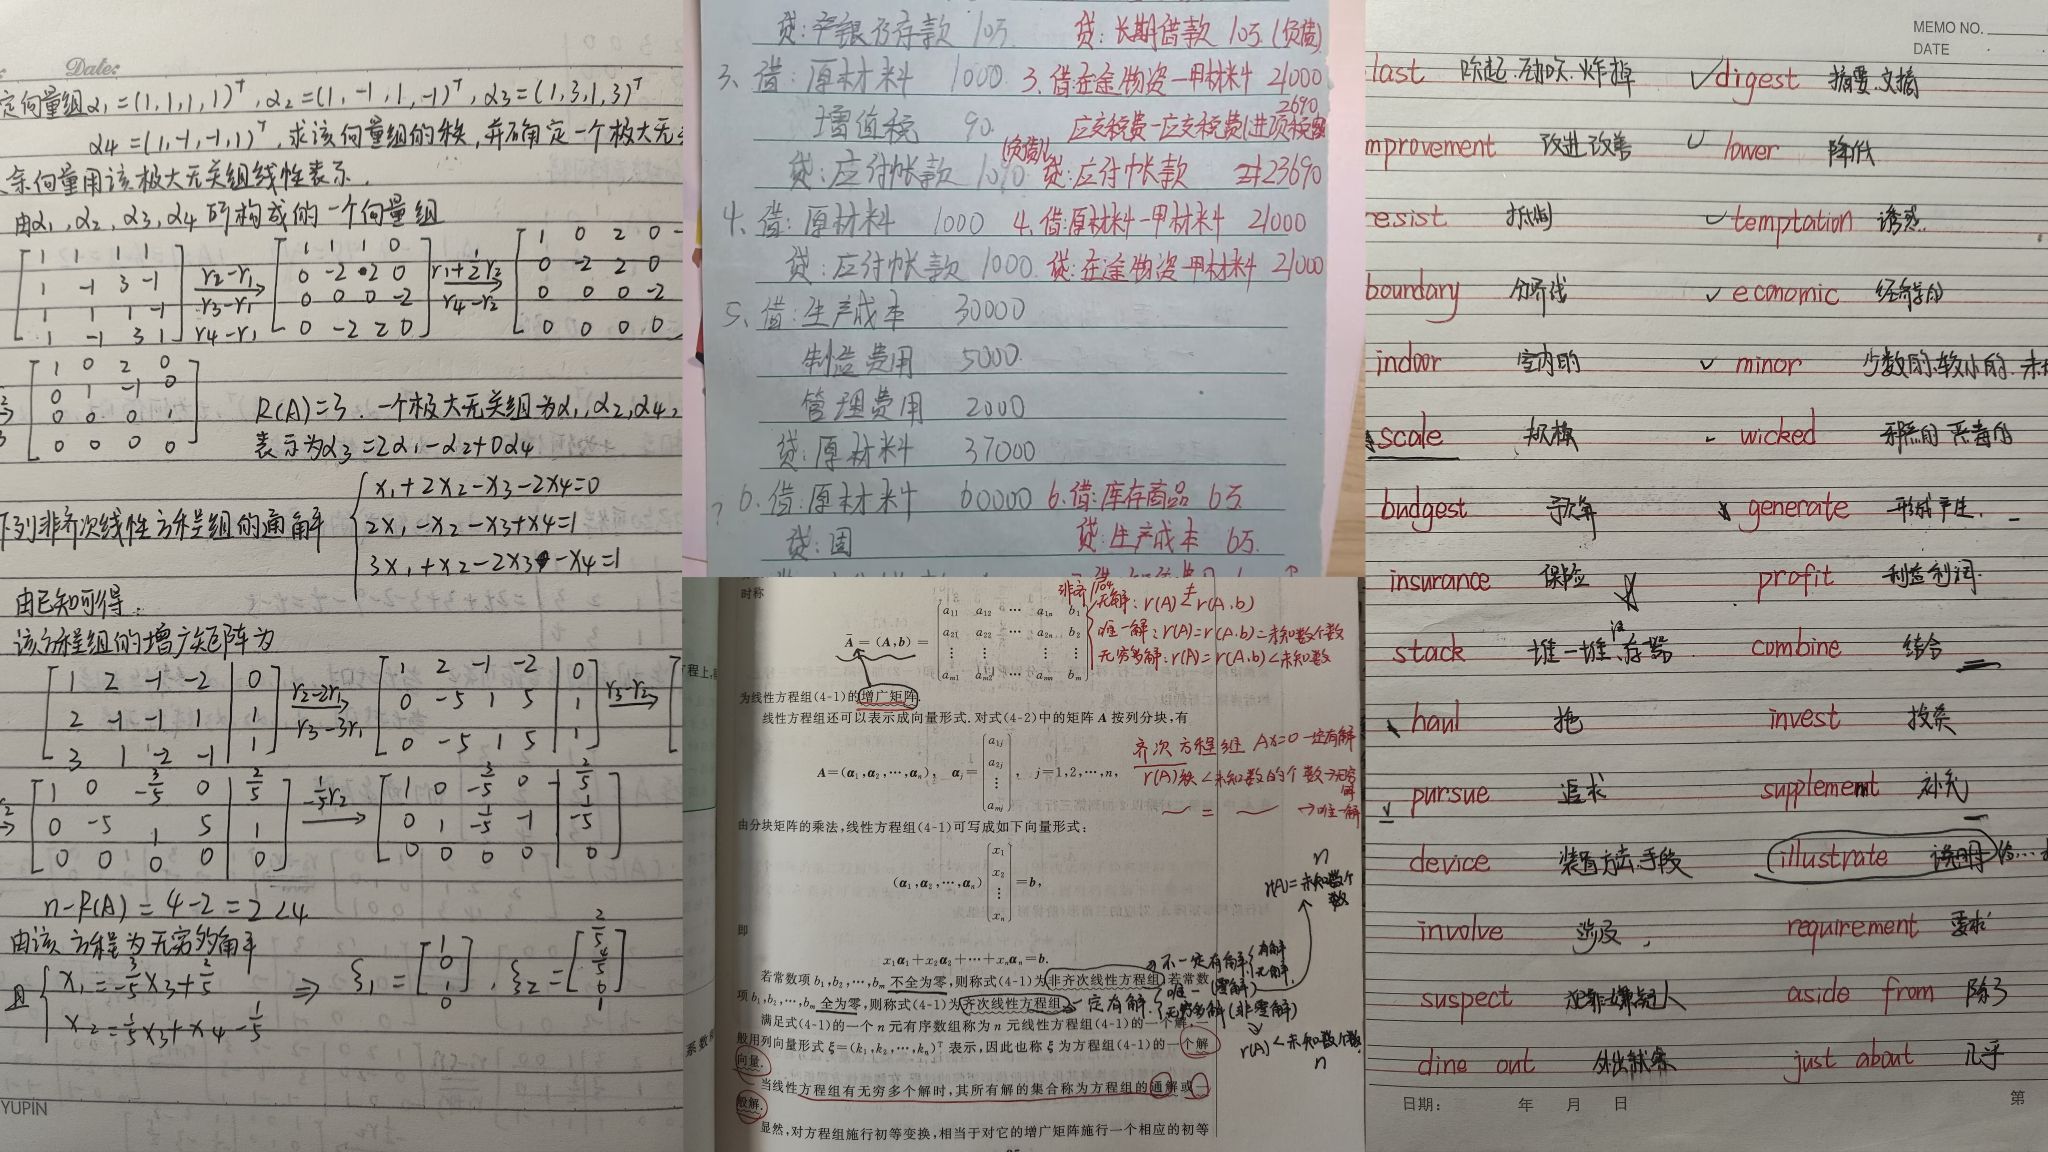 Date:
定向量组α1=(1,1,1,1)ᵀ,α2=(1,-1,1,-1)ᵀ,α3=(1,3,1,3)ᵀ
α4=(1,-1,-1,1)ᵀ,求该向量组的秩,并确定一个极大无
余向量用该极大无关组线性表示.
由α1,α2,α3,α4所构成的一个向量组
1 1 1 1
1 -1 3 -1
1 1 1 -1
1 -1 3 1
r2-r1
r3-r1
r4-r1
1 1 1 0
0 -2 2 0
0 0 0 -2
0 -2 2 0
r1+½r2
r4-r2
1 0 2 0
0 -2 2 0
0 0 0 -2
0 0 0 0
1 0 2 0
0 1 -1 0
0 0 0 1
0 0 0 0
R(A)=3.一个极大无关组为α1,α2,α4,
表示为α3=2α1-α2+0α4
下列非齐次线性方程组的通解
x1+2x2-x3-2x4=0
2x1-x2-x3+x4=1
3x1+x2-2x3-x4=1
由已知可得:
该方程组的增广矩阵为
1 2 -1 -2 | 0
2 -1 -1 1 | 1
3 1 -2 -1 | 1
r2-2r1
r3-3r1
1 2 -1 -2 | 0
0 -5 1 5 | 1
0 -5 1 5 | 1
r3-r2
1 0 -3/5 0 | 2/5
0 -5 1 5 | 1
0 0 0 0 | 0
-1/5r2
1 0 -3/5 0 | 2/5
0 1 -1/5 -1 | -1/5
0 0 0 0 | 0
n-R(A)=4-2=2<4
由该方程为无穷多解
且
x1=-3/5x3+2/5
x2=1/5x3+x4-1/5
⇒ ξ1=[1 0 1 0],ξ2=[2/5 4/5 0 1]
YUPIN
贷:银行存款 10万. 贷:长期借款 10万.(负债)
3、借:原材料 1000 3.借:在途物资—甲材料 21000
增值税 90. 应交税费—应交税费(进项税额 2690
贷:应付帐款 1090 (负债) 贷:应付帐款 23690
4、借:原材料 1000 4.借:原材料—甲材料 21000
贷:应付帐款 1000. 贷:在途物资—甲材料 21000
5、借:生产成本 30000
制造费用 5000.
管理费用 2000
贷:原材料 37000
? 6.借:原材料 60000 6.借:库存商品 6万.
贷:固 贷:生产成本 6万.
时称
Ā=(A,b)=
a11 a12 ⋯ a1n b1
a21 a22 ⋯ a2n b2
⋮ ⋮ ⋮ ⋮
am1 am2 ⋯ amn bm
非齐
无解:r(A)≠r(A,b)
唯一解:r(A)=r(A,b)=未知数个数
无穷多解:r(A)=r(A,b)<未知数
程上,
为线性方程组(4-1)的增广矩阵.
线性方程组还可以表示成向量形式.对式(4-2)中的矩阵A按列分块,有
A=(α1,α2,⋯,αn), αj=[a1j a2j ⋮ amj], j=1,2,⋯,n,
齐次方程组 Ax=0 一定有解
r(A)秩<未知数的个数→无穷解
= →唯一解
由分块矩阵的乘法,线性方程组(4-1)可写成如下向量形式:
(α1,α2,⋯,αn)[x1 x2 ⋮ xn]=b,
n
r(A)=未知数个数
即
x1α1+x2α2+⋯+xnαn=b.
不一定有解{有解 无解.
若常数项b1,b2,⋯,bm不全为零,则称式(4-1)为非齐次线性方程组;若常数
项b1,b2,⋯,bm全为零,则称式(4-1)为齐次线性方程组.
一定有解.{唯一(零解) 无穷多解(非零解)
r(A)<未知数个数
n
满足式(4-1)的一个n元有序数组称为n元线性方程组(4-1)的一个解,一
般用列向量形式ξ=(k1,k2,⋯,kn)ᵀ表示,因此也称ξ为方程组(4-1)的一个解
向量.
系数
当线性方程组有无穷多个解时,其所有解的集合称为方程组的通解或一
般解.
显然,对方程组施行初等变换,相当于对它的增广矩阵施行一个相应的初等
MEMO NO.
DATE
last 吹起.劲吹.炸掉 ✓digest 摘要.文摘
mprovement 改进改善 ✓lower 降低
resist 抵制 ✓temptation 诱惑.
boundary 分界线 ✓economic 经济学的
indoor 室内的 ✓minor 少数的.较小的.
scale 规模 wicked 邪恶的 恶毒的
budgest 预算 generate 形成产生.
insurance 保险 profit 利益利润.
stack 一堆一堆.存器 combine 结合
haul 拖 invest 投资
pursue 追求 supplement 补充
device 装置方法.手段 illustrate 说明
involve 涉及, requirement 要求
suspect 犯罪嫌疑人 aside from 除了
dine out 外出就餐 just about 几乎
日期: 年 月 日 第